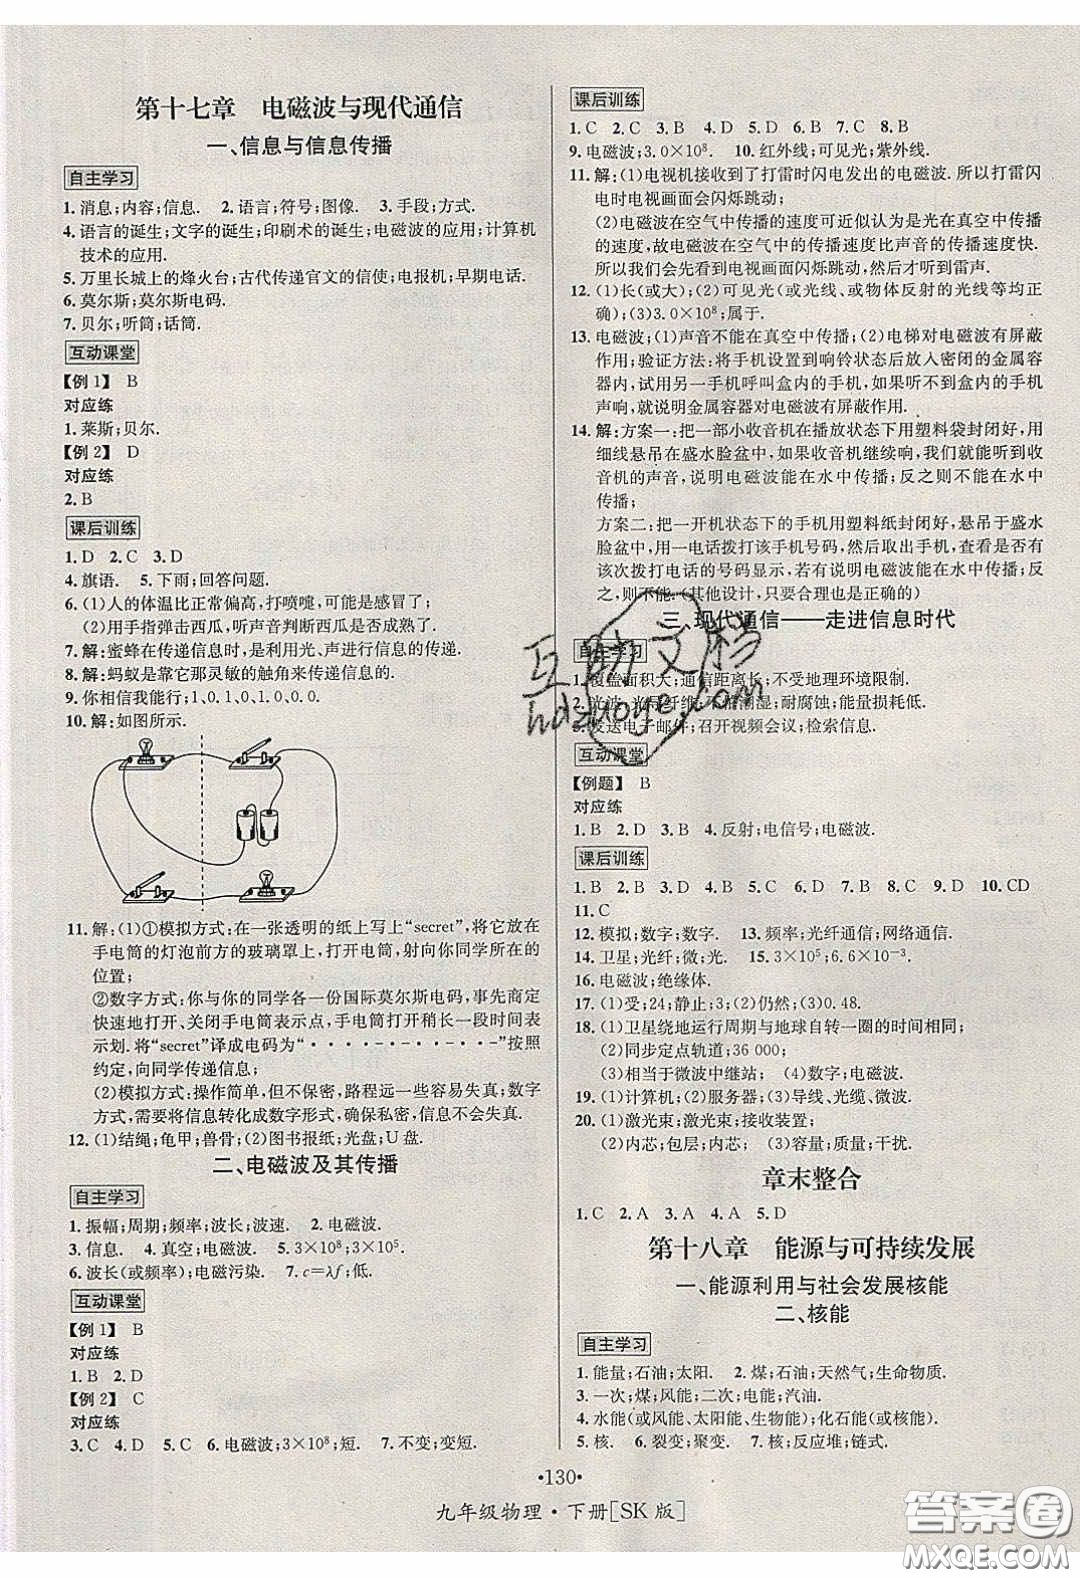 第十七章　电磁波与现代通信
一、信息与信息传播
自主学习
1. 消息;内容;信息.　2. 语言;符号;图像.　3. 手段;方式.
4. 语言的诞生;文字的诞生;印刷术的诞生;电磁波的应用;计算机
技术的应用.
5. 万里长城上的烽火台;古代传递官文的信使;电报机;早期电话.
6. 莫尔斯;莫尔斯电码.
7. 贝尔;听筒;话筒.
互动课堂
【例1】　B
对应练
1. 莱斯;贝尔.
【例2】　D
对应练
2. B
课后训练
1. D　2. C　3. D
4. 旗语.　5. 下雨;回答问题.
6. (1)人的体温比正常偏高,打喷嚏,可能是感冒了;
(2)用手指弹击西瓜,听声音判断西瓜是否成熟了.
7. 解:蜜蜂在传递信息时,是利用光、声进行信息的传递.
8. 解:蚂蚁是靠它那灵敏的触角来传递信息的.
9. 你相信我能行;1、0、1、0、0、0.
10. 解:如图所示.
11. 解:(1)①模拟方式:在一张透明的纸上写上“secret”,将它放在
手电筒的灯泡前方的玻璃罩上,打开电筒,射向你同学所在的
位置;
②数字方式:你与你的同学各一份国际莫尔斯电码,事先商定
快速地打开、关闭手电筒表示点,手电筒打开稍长一段时间表
示划.将“secret”译成电码为“· · · · - · - · · - · · -”按照
约定,向同学传递信息;
(2)模拟方式:操作简单,但不保密,路程远一些容易失真;数字
方式,需要将信息转化成数字形式,确保私密,信息不会失真.
12. (1)结绳;龟甲;兽骨;(2)图书报纸;光盘;U盘.
二、电磁波及其传播
自主学习
1. 振幅;周期;频率;波长;波速.　2. 电磁波.
3. 信息.　4. 真空;电磁波.　5. 3×10⁸;3×10⁸.
6. 波长(或频率);电磁污染.　7. c=λf;低.
互动课堂
【例1】　B
对应练
1. B　2. D
【例2】　C
对应练
3. C　4. D　5. C　6. 电磁波;3×10⁸;短.　7. 不变;变短.
课后训练
1. C　2. C　3. B　4. D　5. D　6. B　7. C　8. B
9. 电磁波;3.0×10⁸.　10. 红外线;可见光;紫外线.
11. 解:(1)电视机接收到了打雷时闪电发出的电磁波.所以打雷闪
电时电视画面会闪烁跳动;
(2)电磁波在空气中传播的速度可近似认为是光在真空中传播
的速度,故电磁波在空气中的传播速度比声音的传播速度快.
所以我们会先看到电视画面闪烁跳动,然后才听到雷声.
12. (1)长(或大);(2)可见光(或光线、或物体反射的光线等均正
确);(3)3.0×10⁸;属于.
13. 电磁波;(1)声音不能在真空中传播;(2)电梯对电磁波有屏蔽
作用;验证方法:将手机设置到响铃状态后放入密闭的金属容
器内,试用另一手机呼叫盒内的手机,如果听不到盒内的手机
声响,就说明金属容器对电磁波有屏蔽作用.
14. 解:方案一:把一部小收音机在播放状态下用塑料袋封闭好,用
细线悬吊在盛水脸盆中,如果收音机继续响,我们就能听到收
音机的声音,说明电磁波能在水中传播;否则不能在水中
传播;
方案二:把一开机状态下的手机用塑料纸封闭好,悬吊于盛水
脸盆中,用一电话拨打该手机号码,然后取出手机,查看是否有
该次拨打电话的号码显示,若有说明电磁波能在水中传播,反
之,则不能.(其他设计,只要合理也是正确的)
三、现代通信——走进信息时代
自主学习
1. 覆盖面积大;通信距离长;不受地理环境限制.
2. 光波;光导纤维;不怕潮湿;耐腐蚀;能量损耗低.
3. 发送电子邮件;召开视频会议;检索信息.
互动课堂
【例题】　B
对应练
1. B　2. D　3. B　4. 反射;电信号;电磁波.
课后训练
1. B　2. B　3. D　4. B　5. D　6. C　7. B　8. C　9. D　10. CD
11. C
12. 模拟;数字;数字.　13. 频率;光纤通信;网络通信.
14. 卫星;光纤;微;光.　15. 3×10⁵;6.6×10⁻³.
16. 电磁波;绝缘体.
17. (1)受;24;静止;3;(2)仍然;(3)0.48.
18. (1)卫星绕地运行周期与地球自转一圈的时间相同;
(2)同步定点轨道;36 000;
(3)相当于微波中继站;　(4)数字;电磁波.
19. (1)计算机;(2)服务器;(3)导线、光缆、微波.
20. (1)激光束;激光束;接收装置;
(2)内芯;包层;内芯;　(3)容量;质量;干扰.
章末整合
1. C　2. A　3. A　4. A　5. D
第十八章　能源与可持续发展
一、能源利用与社会发展核能
二、核能
自主学习
1. 能量;石油;太阳.　2. 煤;石油;天然气;生命物质.
3. 一次;煤;风能;二次;电能;汽油.
4. 水能(或风能、太阳能、生物能);化石能(或核能).
5. 核.　6. 裂变;聚变.　7. 核;反应堆;链式.
·130·
九年级物理·下册[SK版]
互助文档
hdzuoye.com
答案圈
MXQE.COM